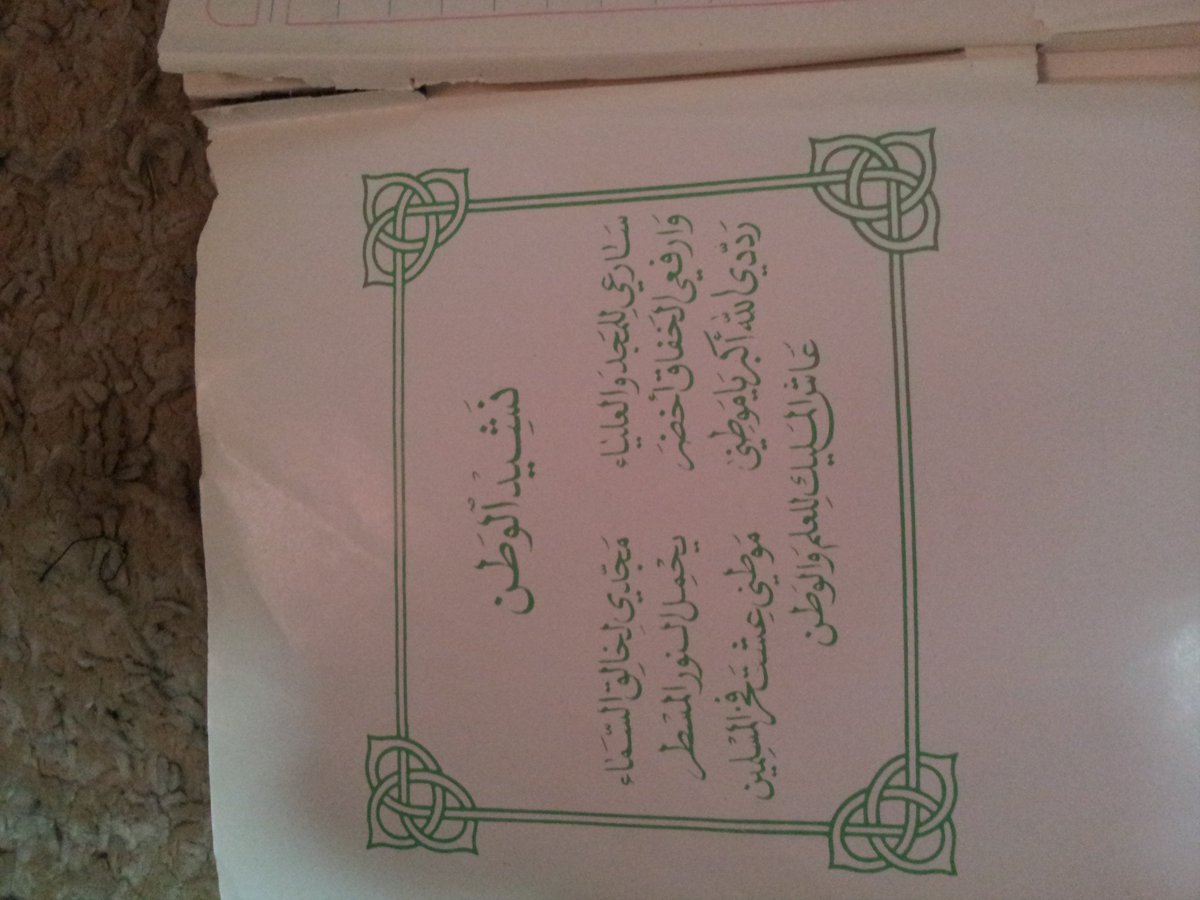 نَشِيدُ ٱلوَطَن
سَارِعِي لِلمَجْدِ وَالعَليَاء مَجِّدِي لِخَالِقِ السَّمَاء
وَارفَعِي الخَفَّاقَ أَخضَرَ يَحْمِلُ النورَ المُسَطَّر
رَدِّدِي اللهُ أَكبَر يَا مَوطِنِي مَوطِنِي عِشتَ فَخرَ المُسْلِمِين
عَاشَ المَلِيكُ لِلعَلَم وَالوَطَن